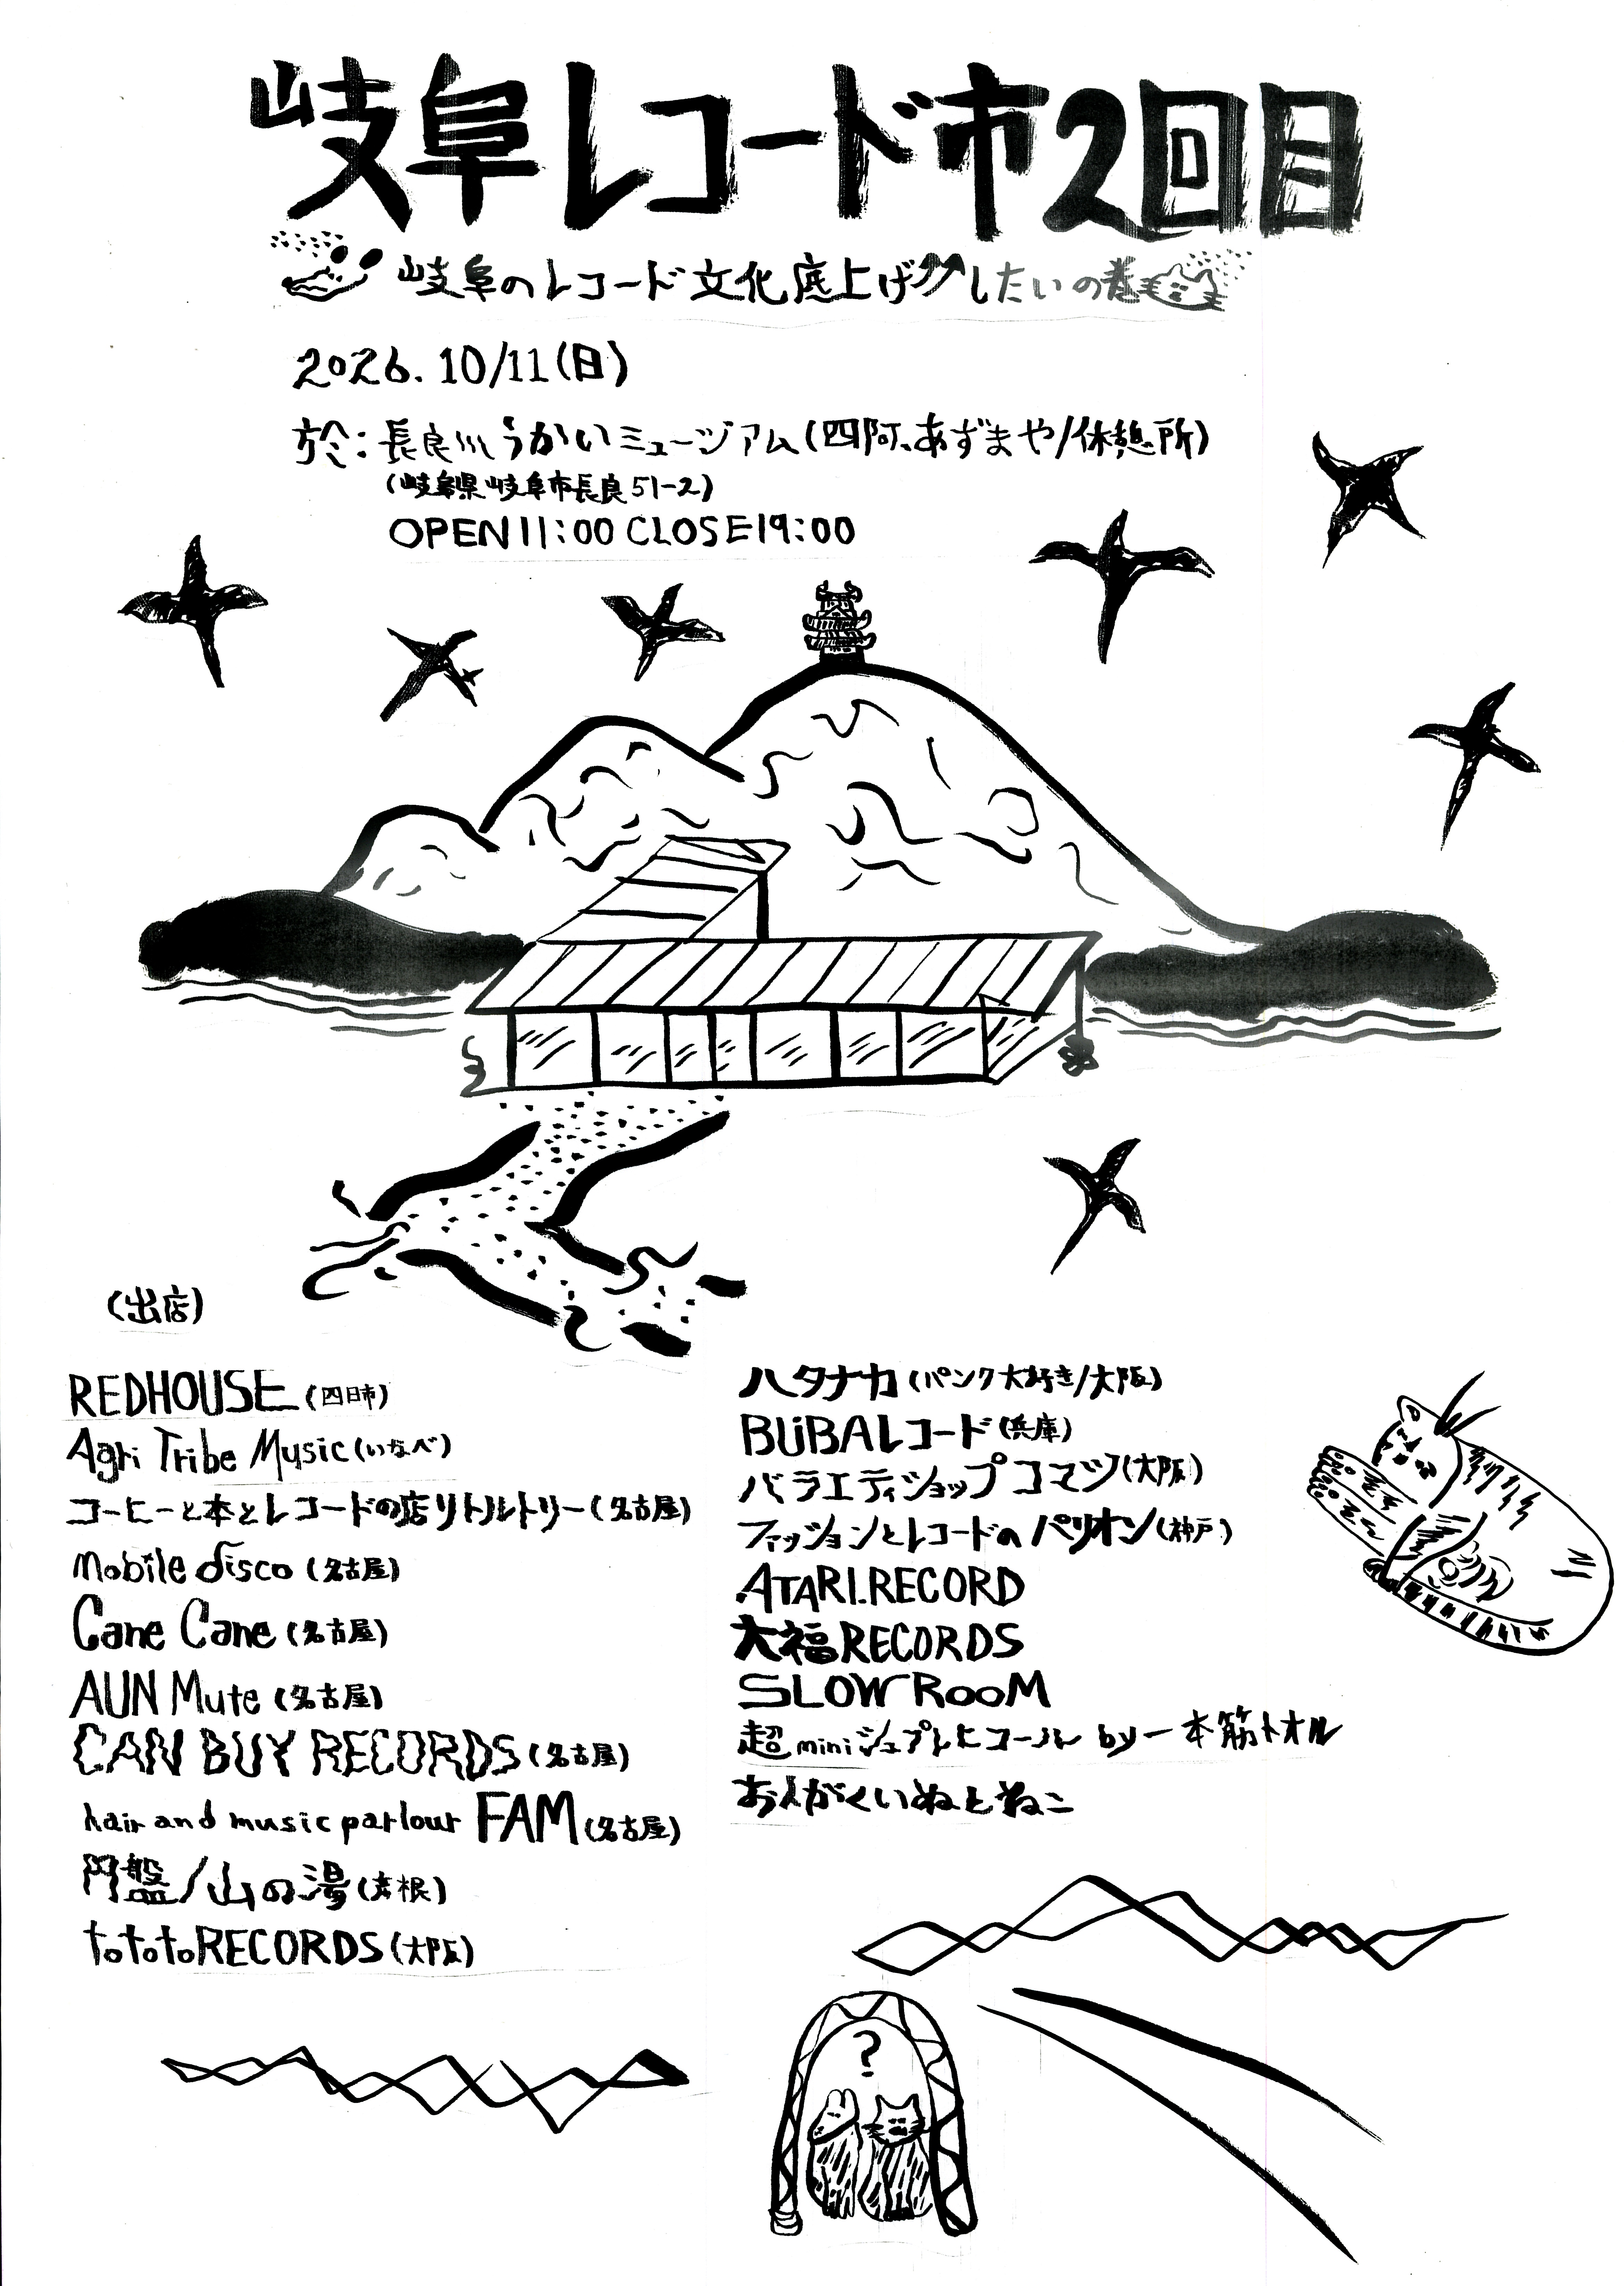 岐阜レコード市2回目
岐阜のレコード文化底上げしたいの巻
2026.10/11(日)
於:長良川うかいミュージアム(四阿、あずまや/休憩所)
(岐阜県岐阜市長良51-2)
OPEN11:00 CLOSE19:00
(出店)
REDHOUSE(四日市)
Agri Tribe Music(いなべ)
コーヒーと本とレコードの店リトルトリー(名古屋)
mobile disco(名古屋)
Cane Cane(名古屋)
AUN Mute(名古屋)
CAN BUY RECORDS(名古屋)
hair and music parlour FAM(名古屋)
円盤/山の湯(彦根)
tototoRECORDS(大阪)
ハタナカ(パンク大好き/大阪)
BUBAレコード(兵庫)
バラエティショップコマツ(大阪)
ファッションとレコードのパリオン(神戸)
ATARI.RECORD
大福RECORDS
SLOW ROOM
超miniシュプレヒコール by 一本筋トオル
おんがくいぬとねこ
?